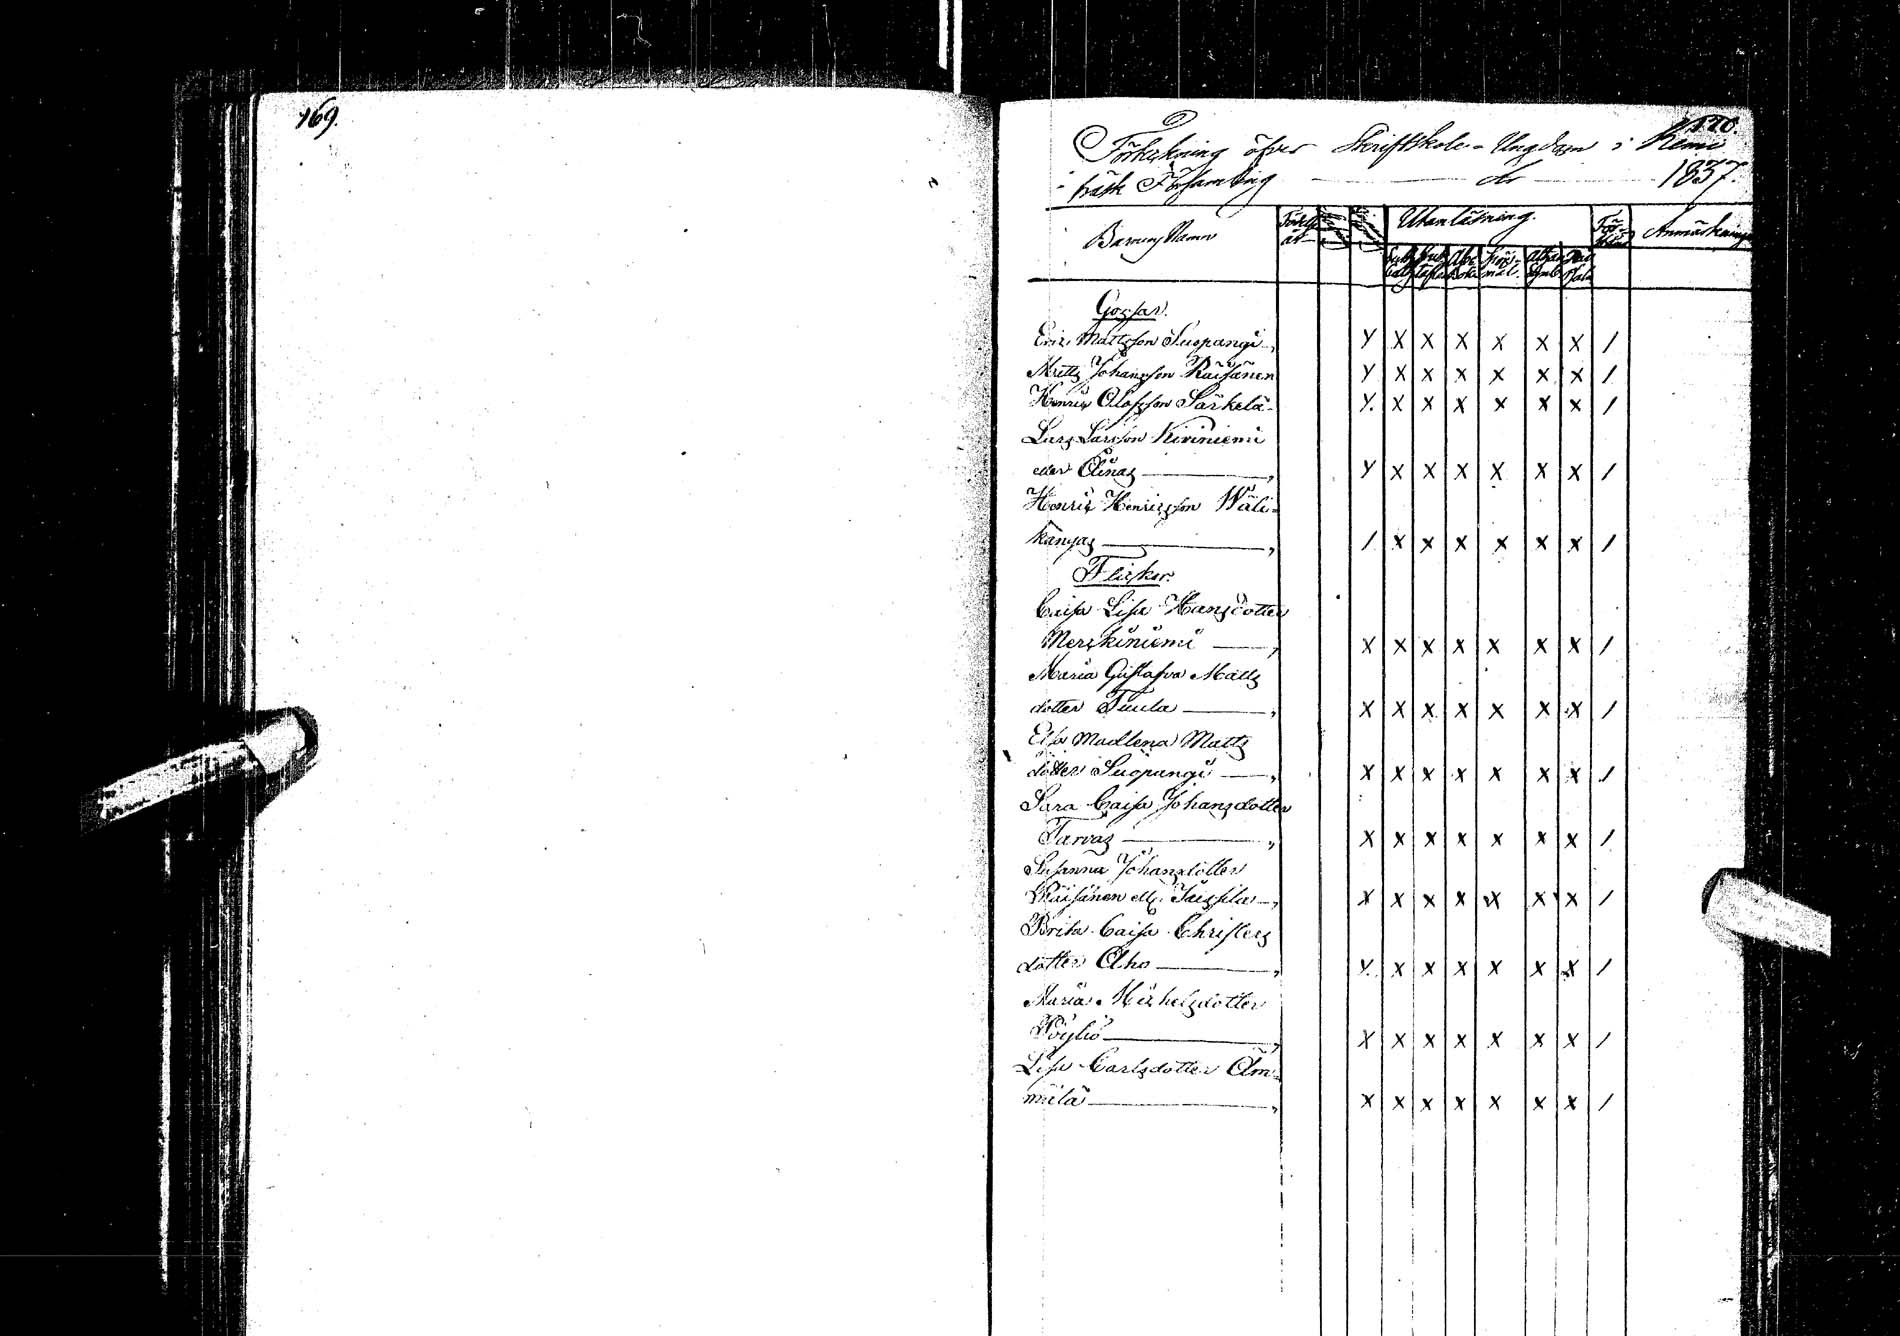 169.
170.
Förtekning öfver Skriftskole-Ungdom i Kemi
träsk Församling år 1837.
Barnens Namn
Födelse
år
Utanläsning.
Anmärkning
Gossar.
Eric Mattsson Suopangi
Y X X X X X X /
Matts Johansson Räisänen
Y X X X X X X /
Henric Olofsson Särkelä
Y. X X X X X X /
Lars Larsson Kiviniemi
eller Olinas
Y X X X X X X /
Henric Henricsson Wäli-
kangas
/ X X X X X X /
Flickor.
Caisa Lisa Hansdotter
Merskiniemi
X X X X X X X /
Maria Gustafva Matts
dotter Tuula
X X X X X X X /
Elsa Madlena Matts
dotter Suopangi
X X X X X X X /
Sara Caisa Johansdotter
Tarvas
X X X X X X X /
Susanna Johansdotter
Räisänen ell.
X X X X X X X /
Brita Caisa Christers
dotter Aho
Y. X X X X X X /
Maria Michelsdotter
Pöyliö
X X X X X X X /
Lisa Carlsdotter Äm-
mälä
X X X X X X X /